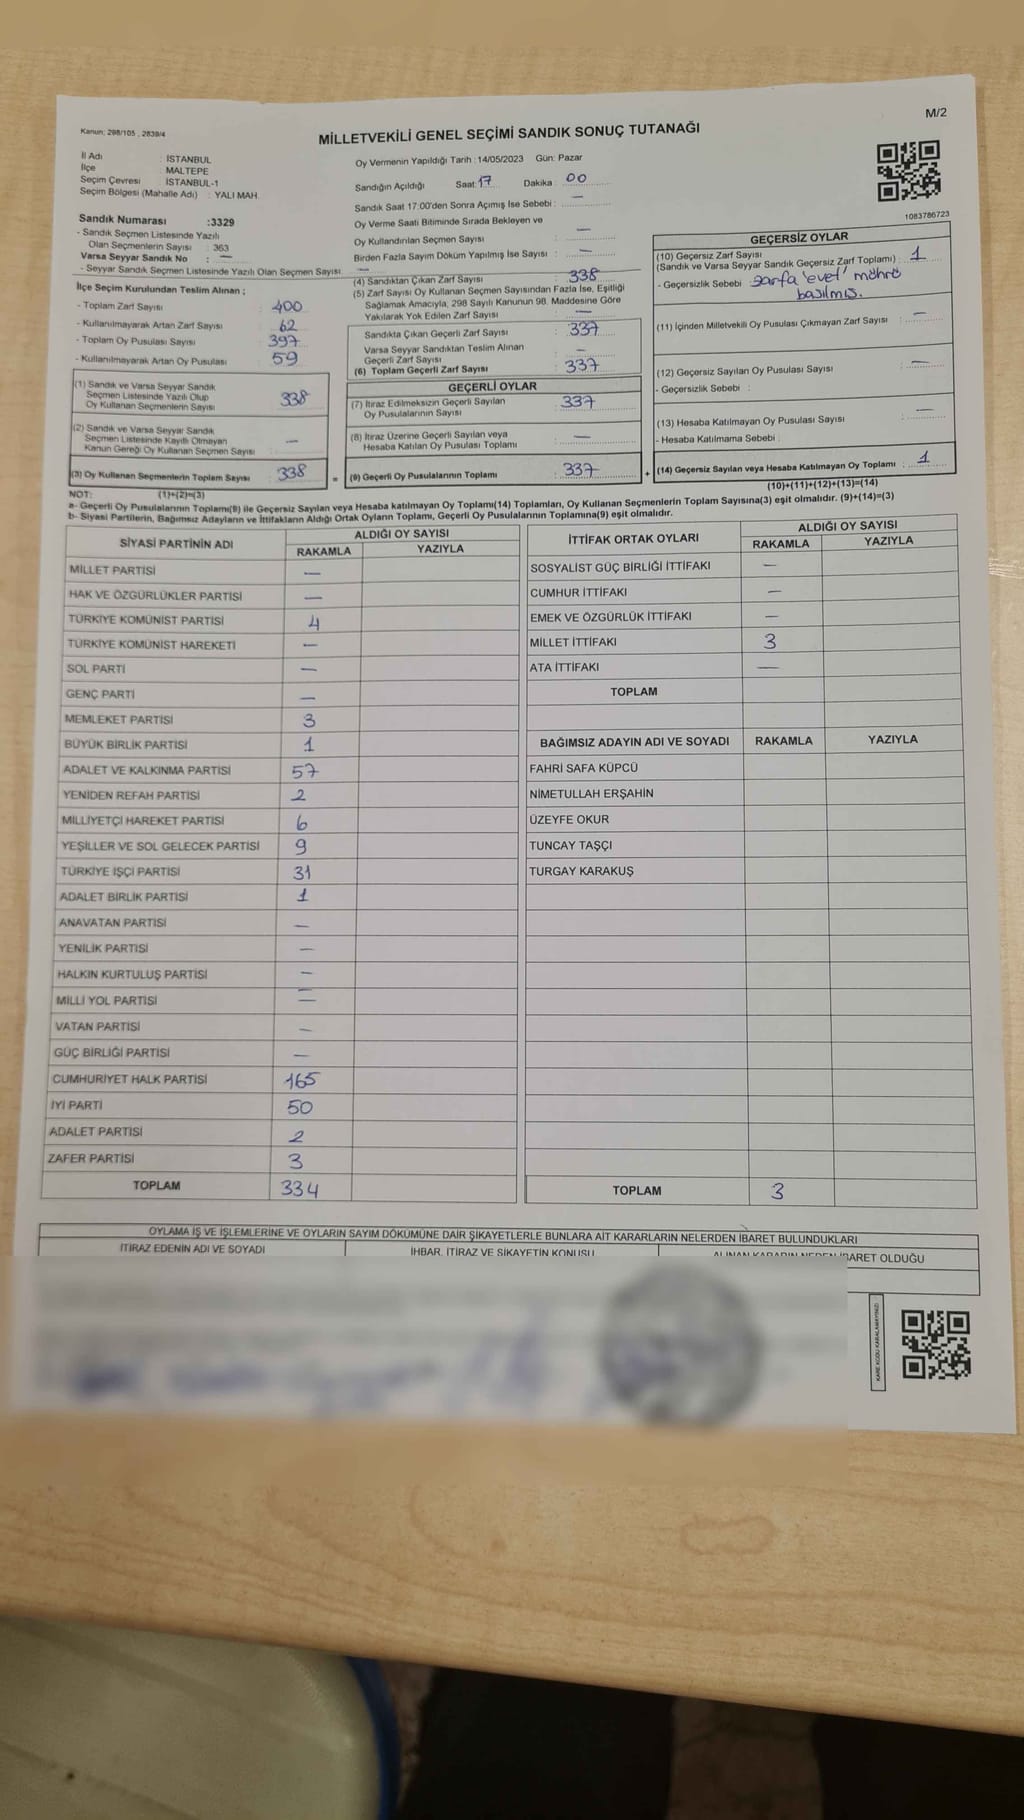 Kanun: 298/105 , 2839/4
MİLLETVEKİLİ GENEL SEÇİMİ SANDIK SONUÇ TUTANAĞI
M/2
İl Adı : İSTANBUL
İlçe : MALTEPE
Seçim Çevresi : İSTANBUL-1
Seçim Bölgesi (Mahalle Adı) : YALI MAH.
Sandık Numarası :3329
- Sandık Seçmen Listesinde Yazılı
Olan Seçmenlerin Sayısı : 363
Varsa Seyyar Sandık No : —
- Seyyar Sandık Seçmen Listesinde Yazılı Olan Seçmen Sayısı: —
Oy Vermenin Yapıldığı Tarih :14/05/2023 Gün: Pazar
Sandığın Açıldığı Saat: 17 Dakika : 00
Sandık Saat 17:00'den Sonra Açımış İse Sebebi : —
Oy Verme Saati Bitiminde Sırada Bekleyen ve
Oy Kullandırılan Seçmen Sayısı : —
Birden Fazla Sayım Döküm Yapılmış İse Sayısı : —
1083786723
İlçe Seçim Kurulundan Teslim Alınan ;
- Toplam Zarf Sayısı : 400
- Kullanılmayarak Artan Zarf Sayısı : 62
- Toplam Oy Pusulası Sayısı : 397
- Kullanılmayarak Artan Oy Pusulası : 59
(1) Sandık ve Varsa Seyyar Sandık
Seçmen Listesinde Yazılı Olup
Oy Kullanan Seçmenlerin Sayısı : 338
(2) Sandık ve Varsa Seyyar Sandık
Seçmen Listesinde Kayıtlı Olmayan
Kanun Gereği Oy Kullanan Seçmen Sayısı : —
(3) Oy Kullanan Seçmenlerin Toplam Sayısı : 338
(4) Sandıktan Çıkan Zarf Sayısı : 338
(5) Zarf Sayısı Oy Kullanan Seçmen Sayısından Fazla İse, Eşitliği
Sağlamak Amacıyla, 298 Sayılı Kanunun 98. Maddesine Göre
Yakılarak Yok Edilen Zarf Sayısı : —
Sandıkta Çıkan Geçerli Zarf Sayısı : 337
Varsa Seyyar Sandıktan Teslim Alınan
Geçerli Zarf Sayısı : —
(6) Toplam Geçerli Zarf Sayısı : 337
GEÇERLİ OYLAR
(7) İtiraz Edilmeksizin Geçerli Sayılan
Oy Pusulalarının Sayısı : 337
(8) İtiraz Üzerine Geçerli Sayılan veya
Hesaba Katılan Oy Pusulası Toplamı : —
= (9) Geçerli Oy Pusulalarının Toplamı : 337 +
GEÇERSİZ OYLAR
(10) Geçersiz Zarf Sayısı
(Sandık ve Varsa Seyyar Sandık Geçersiz Zarf Toplamı) : 1
- Geçersizlik Sebebi : zarfa 'evet' mührü
basılmış.
(11) İçinden Milletvekili Oy Pusulası Çıkmayan Zarf Sayısı : —
(12) Geçersiz Sayılan Oy Pusulası Sayısı : —
- Geçersizlik Sebebi :
(13) Hesaba Katılmayan Oy Pusulası Sayısı : —
- Hesaba Katılmama Sebebi :
(14) Geçersiz Sayılan veya Hesaba Katılmayan Oy Toplamı : 1
NOT: (1)+(2)=(3)
(10)+(11)+(12)+(13)=(14)
a- Geçerli Oy Pusulalarının Toplamı(9) ile Geçersiz Sayılan veya Hesaba katılmayan Oy Toplamı(14) Toplamları, Oy Kullanan Seçmenlerin Toplam Sayısına(3) eşit olmalıdır. (9)+(14)=(3)
b- Siyasi Partilerin, Bağımsız Adayların ve İttifakların Aldığı Ortak Oyların Toplamı, Geçerli Oy Pusulalarının Toplamına(9) eşit olmalıdır.
SİYASİ PARTİNİN ADI ALDIĞI OY SAYISI
RAKAMLA YAZIYLA
MİLLET PARTİSİ —
HAK VE ÖZGÜRLÜKLER PARTİSİ —
TÜRKİYE KOMÜNİST PARTİSİ 4
TÜRKİYE KOMÜNİST HAREKETİ —
SOL PARTİ —
GENÇ PARTİ —
MEMLEKET PARTİSİ 3
BÜYÜK BİRLİK PARTİSİ 1
ADALET VE KALKINMA PARTİSİ 57
YENİDEN REFAH PARTİSİ 2
MİLLİYETÇİ HAREKET PARTİSİ 6
YEŞİLLER VE SOL GELECEK PARTİSİ 9
TÜRKİYE İŞÇİ PARTİSİ 31
ADALET BİRLİK PARTİSİ 1
ANAVATAN PARTİSİ —
YENİLİK PARTİSİ —
HALKIN KURTULUŞ PARTİSİ —
MİLLİ YOL PARTİSİ —
VATAN PARTİSİ —
GÜÇ BİRLİĞİ PARTİSİ —
CUMHURİYET HALK PARTİSİ 165
İYİ PARTİ 50
ADALET PARTİSİ 2
ZAFER PARTİSİ 3
TOPLAM 334
İTTİFAK ORTAK OYLARI ALDIĞI OY SAYISI
RAKAMLA YAZIYLA
SOSYALİST GÜÇ BİRLİĞİ İTTİFAKI —
CUMHUR İTTİFAKI —
EMEK VE ÖZGÜRLÜK İTTİFAKI —
MİLLET İTTİFAKI 3
ATA İTTİFAKI —
TOPLAM
BAĞIMSIZ ADAYIN ADI VE SOYADI RAKAMLA YAZIYLA
FAHRİ SAFA KÜPCÜ
NİMETULLAH ERŞAHİN
ÜZEYFE OKUR
TUNCAY TAŞÇI
TURGAY KARAKUŞ
TOPLAM 3
OYLAMA İŞ VE İŞLEMLERİNE VE OYLARIN SAYIM DÖKÜMÜNE DAİR ŞİKAYETLERLE BUNLARA AİT KARARLARIN NELERDEN İBARET BULUNDUKLARI
İTİRAZ EDENİN ADI VE SOYADI İHBAR, İTİRAZ VE ŞİKAYETİN KONUSU ALINAN KARARIN NEDEN İBARET OLDUĞU
KARE KODU KARALAMAYINIZ!